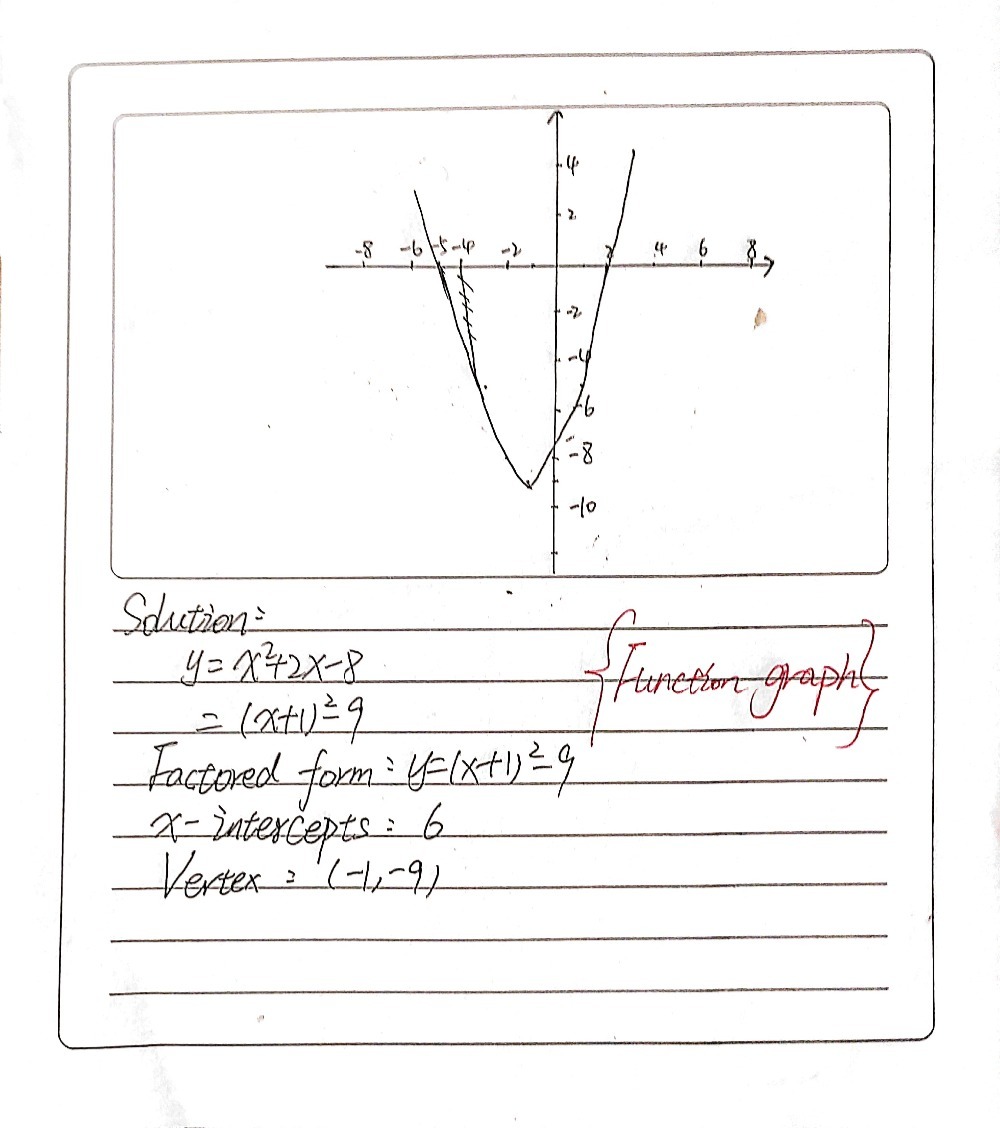 4
2
-8 -6 -5 -4 -2 2 4 6 8
-2
-4
-6
-8
-10
Solution:
y = x²+2x-8
= (x+1)²-9
{Function graph}
Factored form: y=(x+1)²-9
x-intercepts: 6
Vertex: (-1,-9)